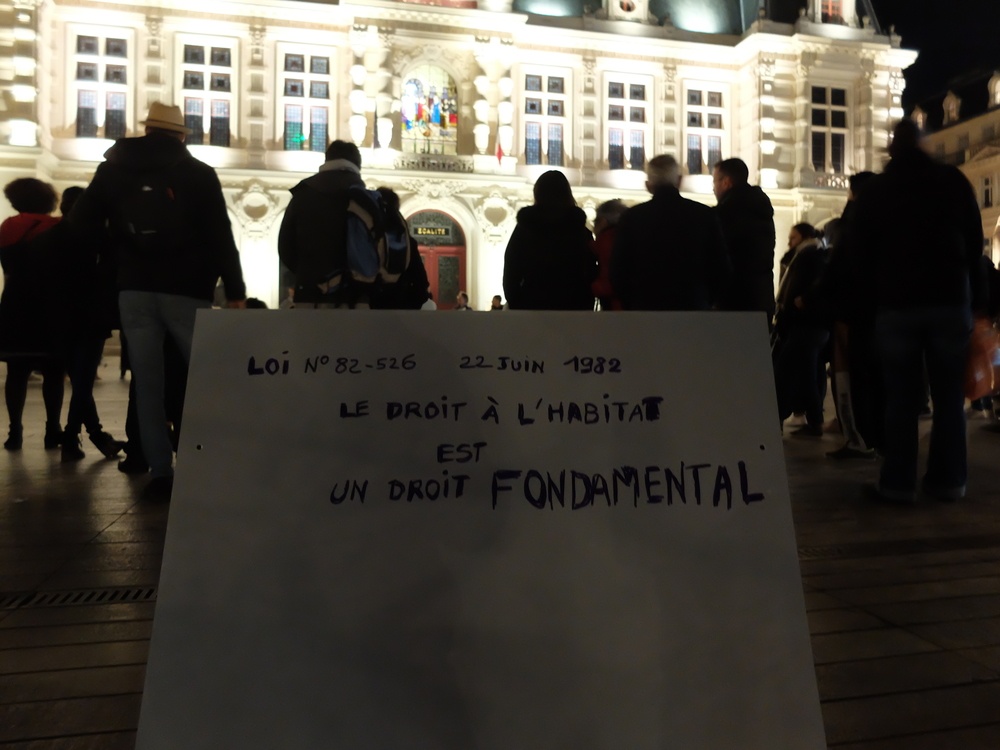 ÉGALITÉ
LOi N° 82-526 22 JUiN 1982
LE DROIT À L'HABITAT
EST
UN DROIT FONDAMENTAL